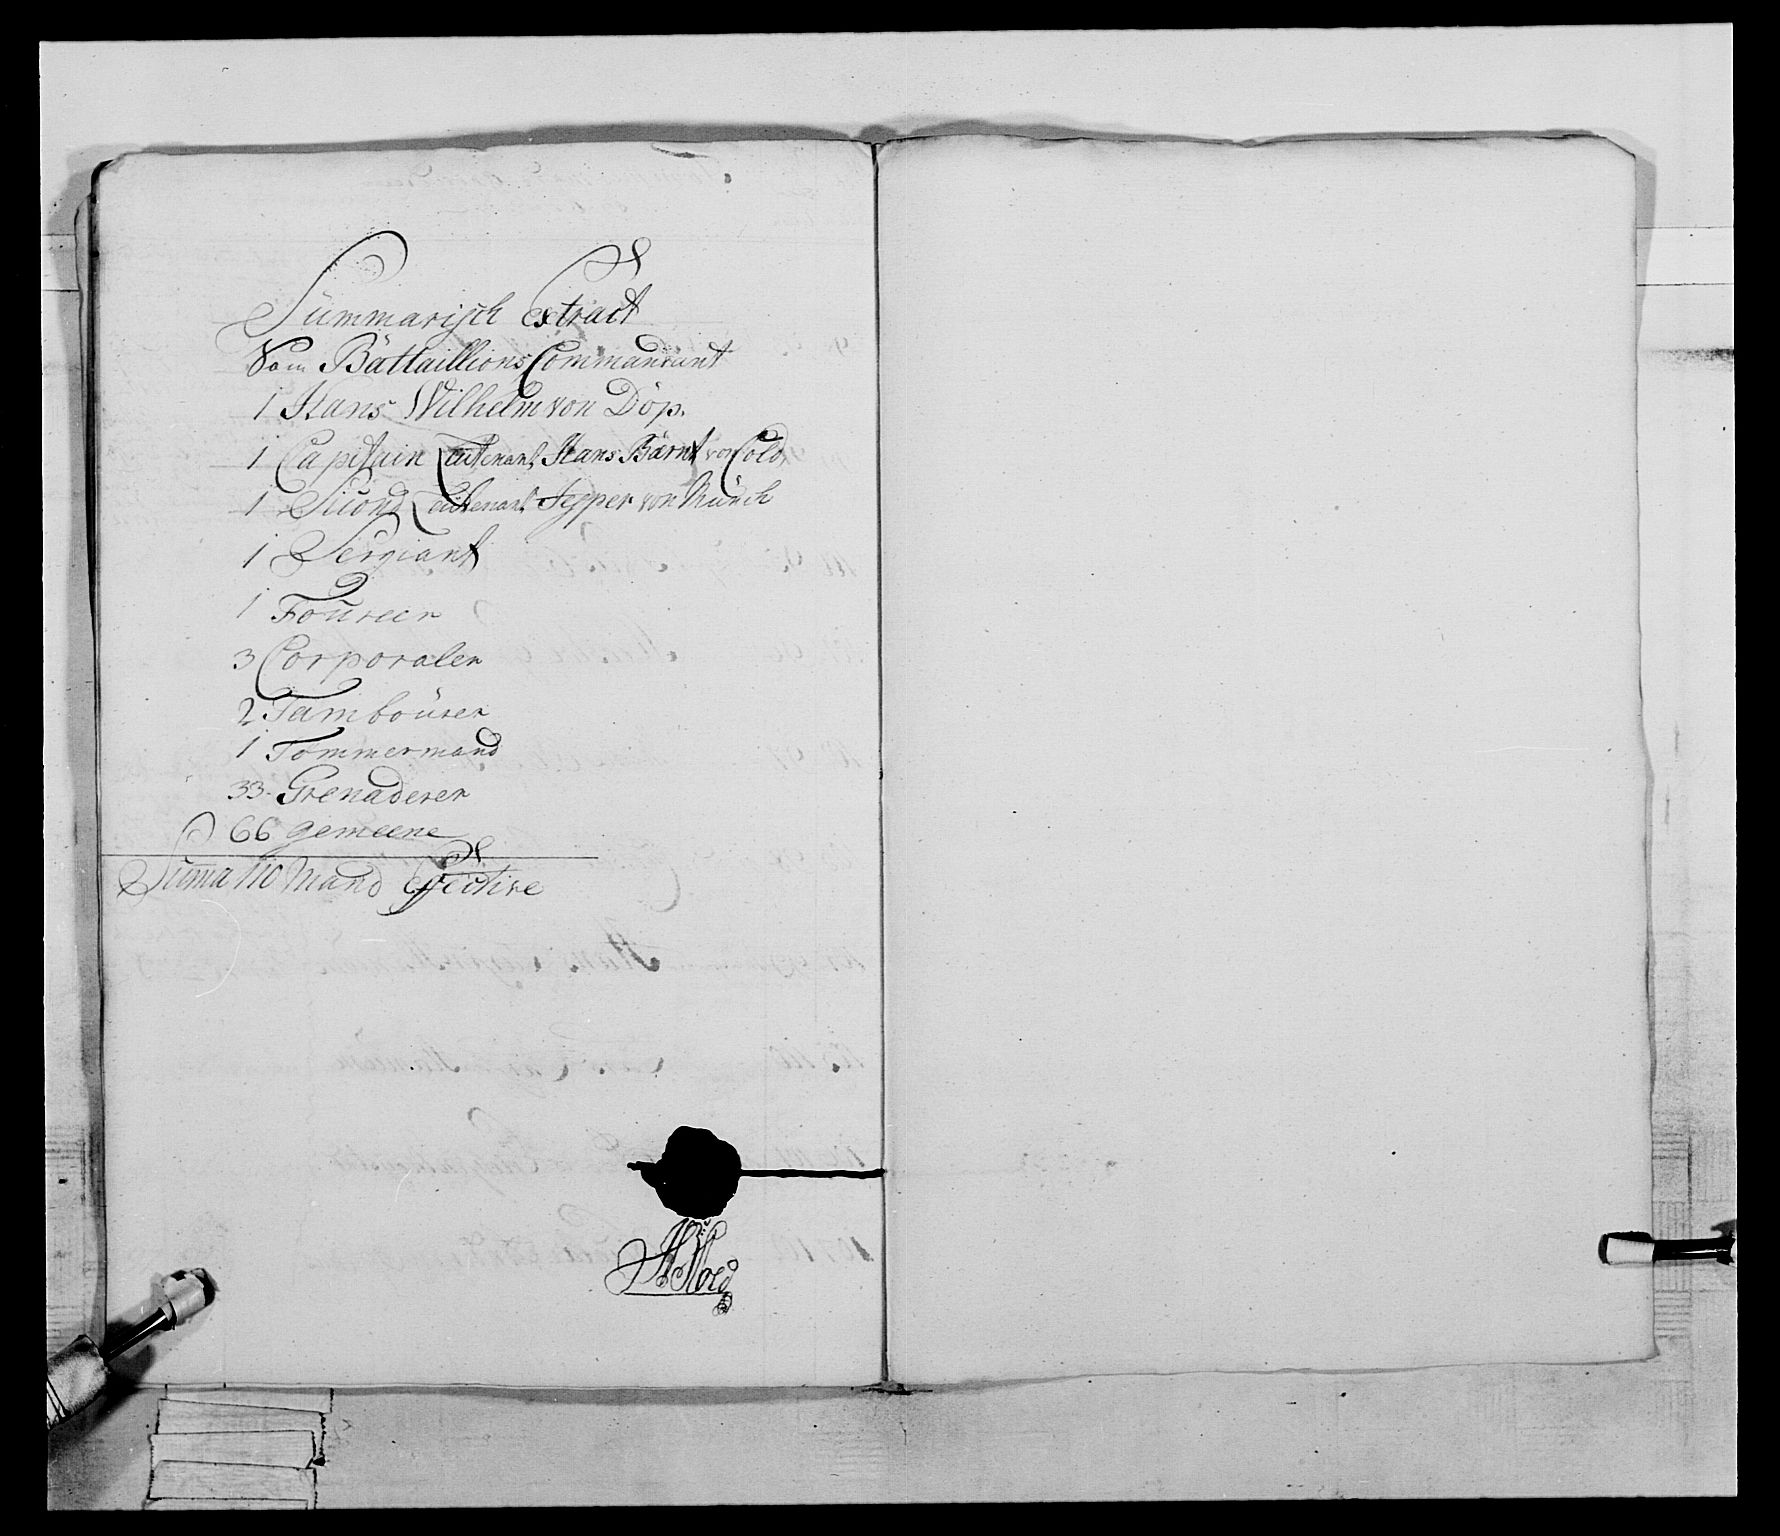 Summarisch Extract
Vom Battaillions Commandant
1 Hans Wilhelm von Döp.
1 Capitain Lieutenant Hans Bärnt von Cold
1 Second Lieutenant Jepper von Munch
1 Sergiant
1 Foureer
3 Corporaler
2 Tambourer
1 Tømmermand
33. Grenaderer
66 gemeene
Suma 110 Mand Effective